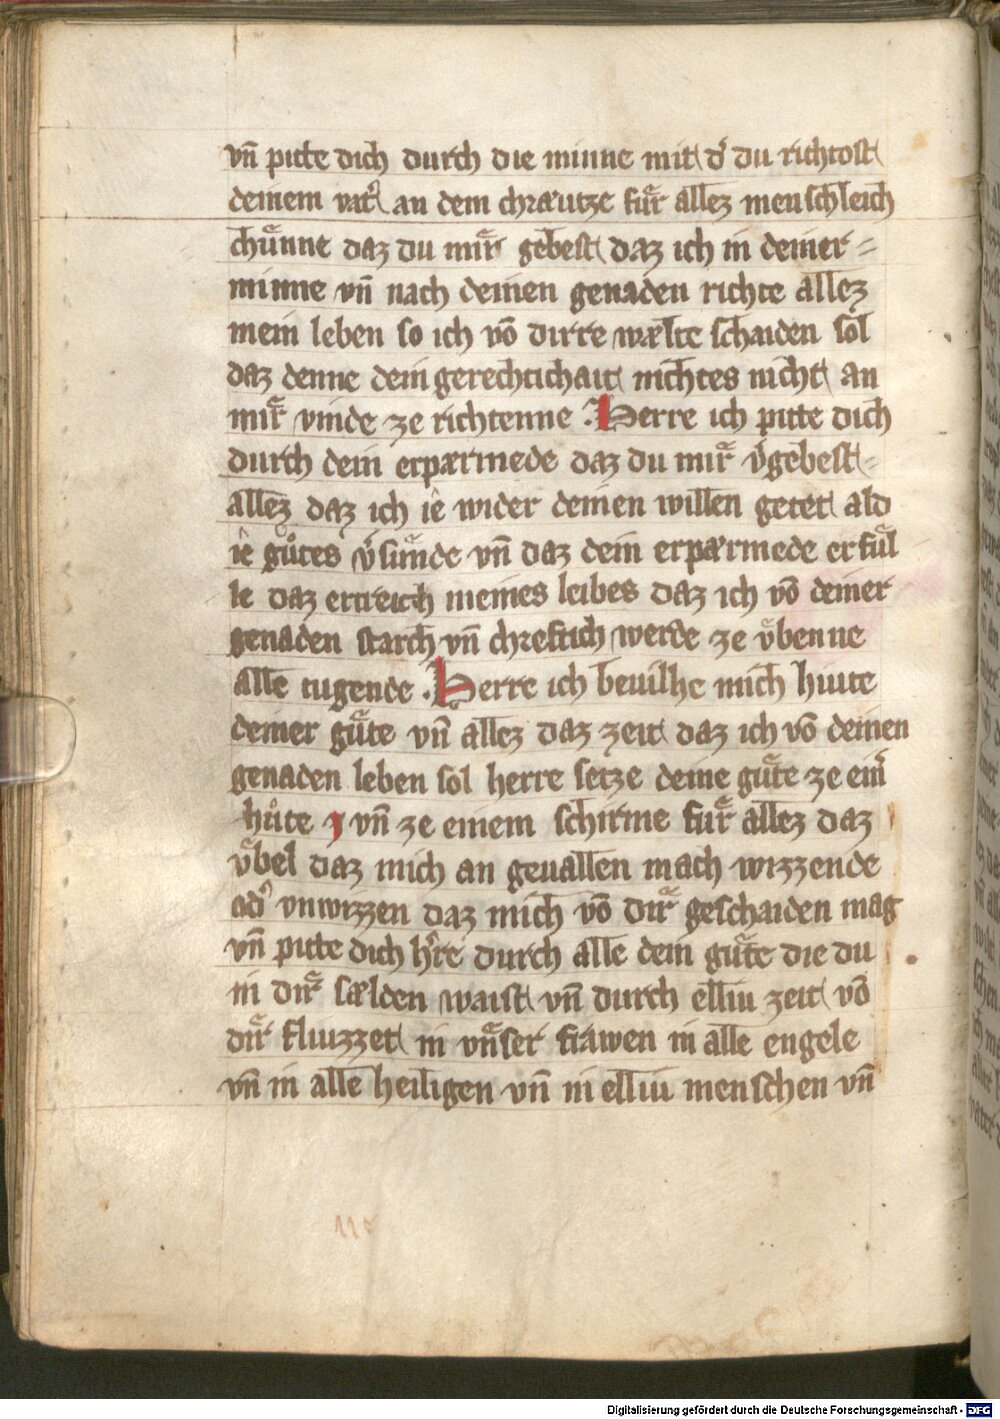 vn̄ pitte dich durch die minne mit d᷑ du richtost
deinem vat᷑ an dem chræutze fuͤr allez menschleich
chuͤnne daz du mir᷑ gebest daz ich in deiner =
minne vn̄ nach deinen genaden richte allez
mein leben so ich vō dirre wælte schaiden sol
daz denne dein gerechtichait nichtes nicht an
mir᷑ vinde ze richtenne . Herre ich pitte dich
durch dein erpærmede daz du mir᷑ v᷑gebest =
allez daz ich îe wider deinen willen getet ald
îe guͦtes v᷑suͤmde vn̄ daz dein erpærmede erfuͤl
le daz ertreich meines leibes daz ich vō deiner
genaden starch vn̄ chreftich werde ze vͤbenne
alle tugende . Herre ich beuilhe mich hiute
deiner guͤte vn̄ allez daz zeit daz ich vō deinen
genaden leben sol herre setze deine guͤte ze ein᷑
huͦte vn̄ ze einem schirme fuͤr allez daz
vͤbel daz mich an geuallen mach wizzende
od᷑ vnwizzen daz mich vō dir᷑ geschaiden mag
vn̄ pitte dich h᷑re durch alle dein guͤte die du
in dir᷑ sælden waist vn̄ durch elliu zeit vō
dir᷑ fliuzzet in vnser frawen in alle engele
vn̄ in alle heiligen vn̄ in elliu menschen vn̄
Digitalisierung gefördert durch die Deutsche Forschungsgemeinschaft - DFG